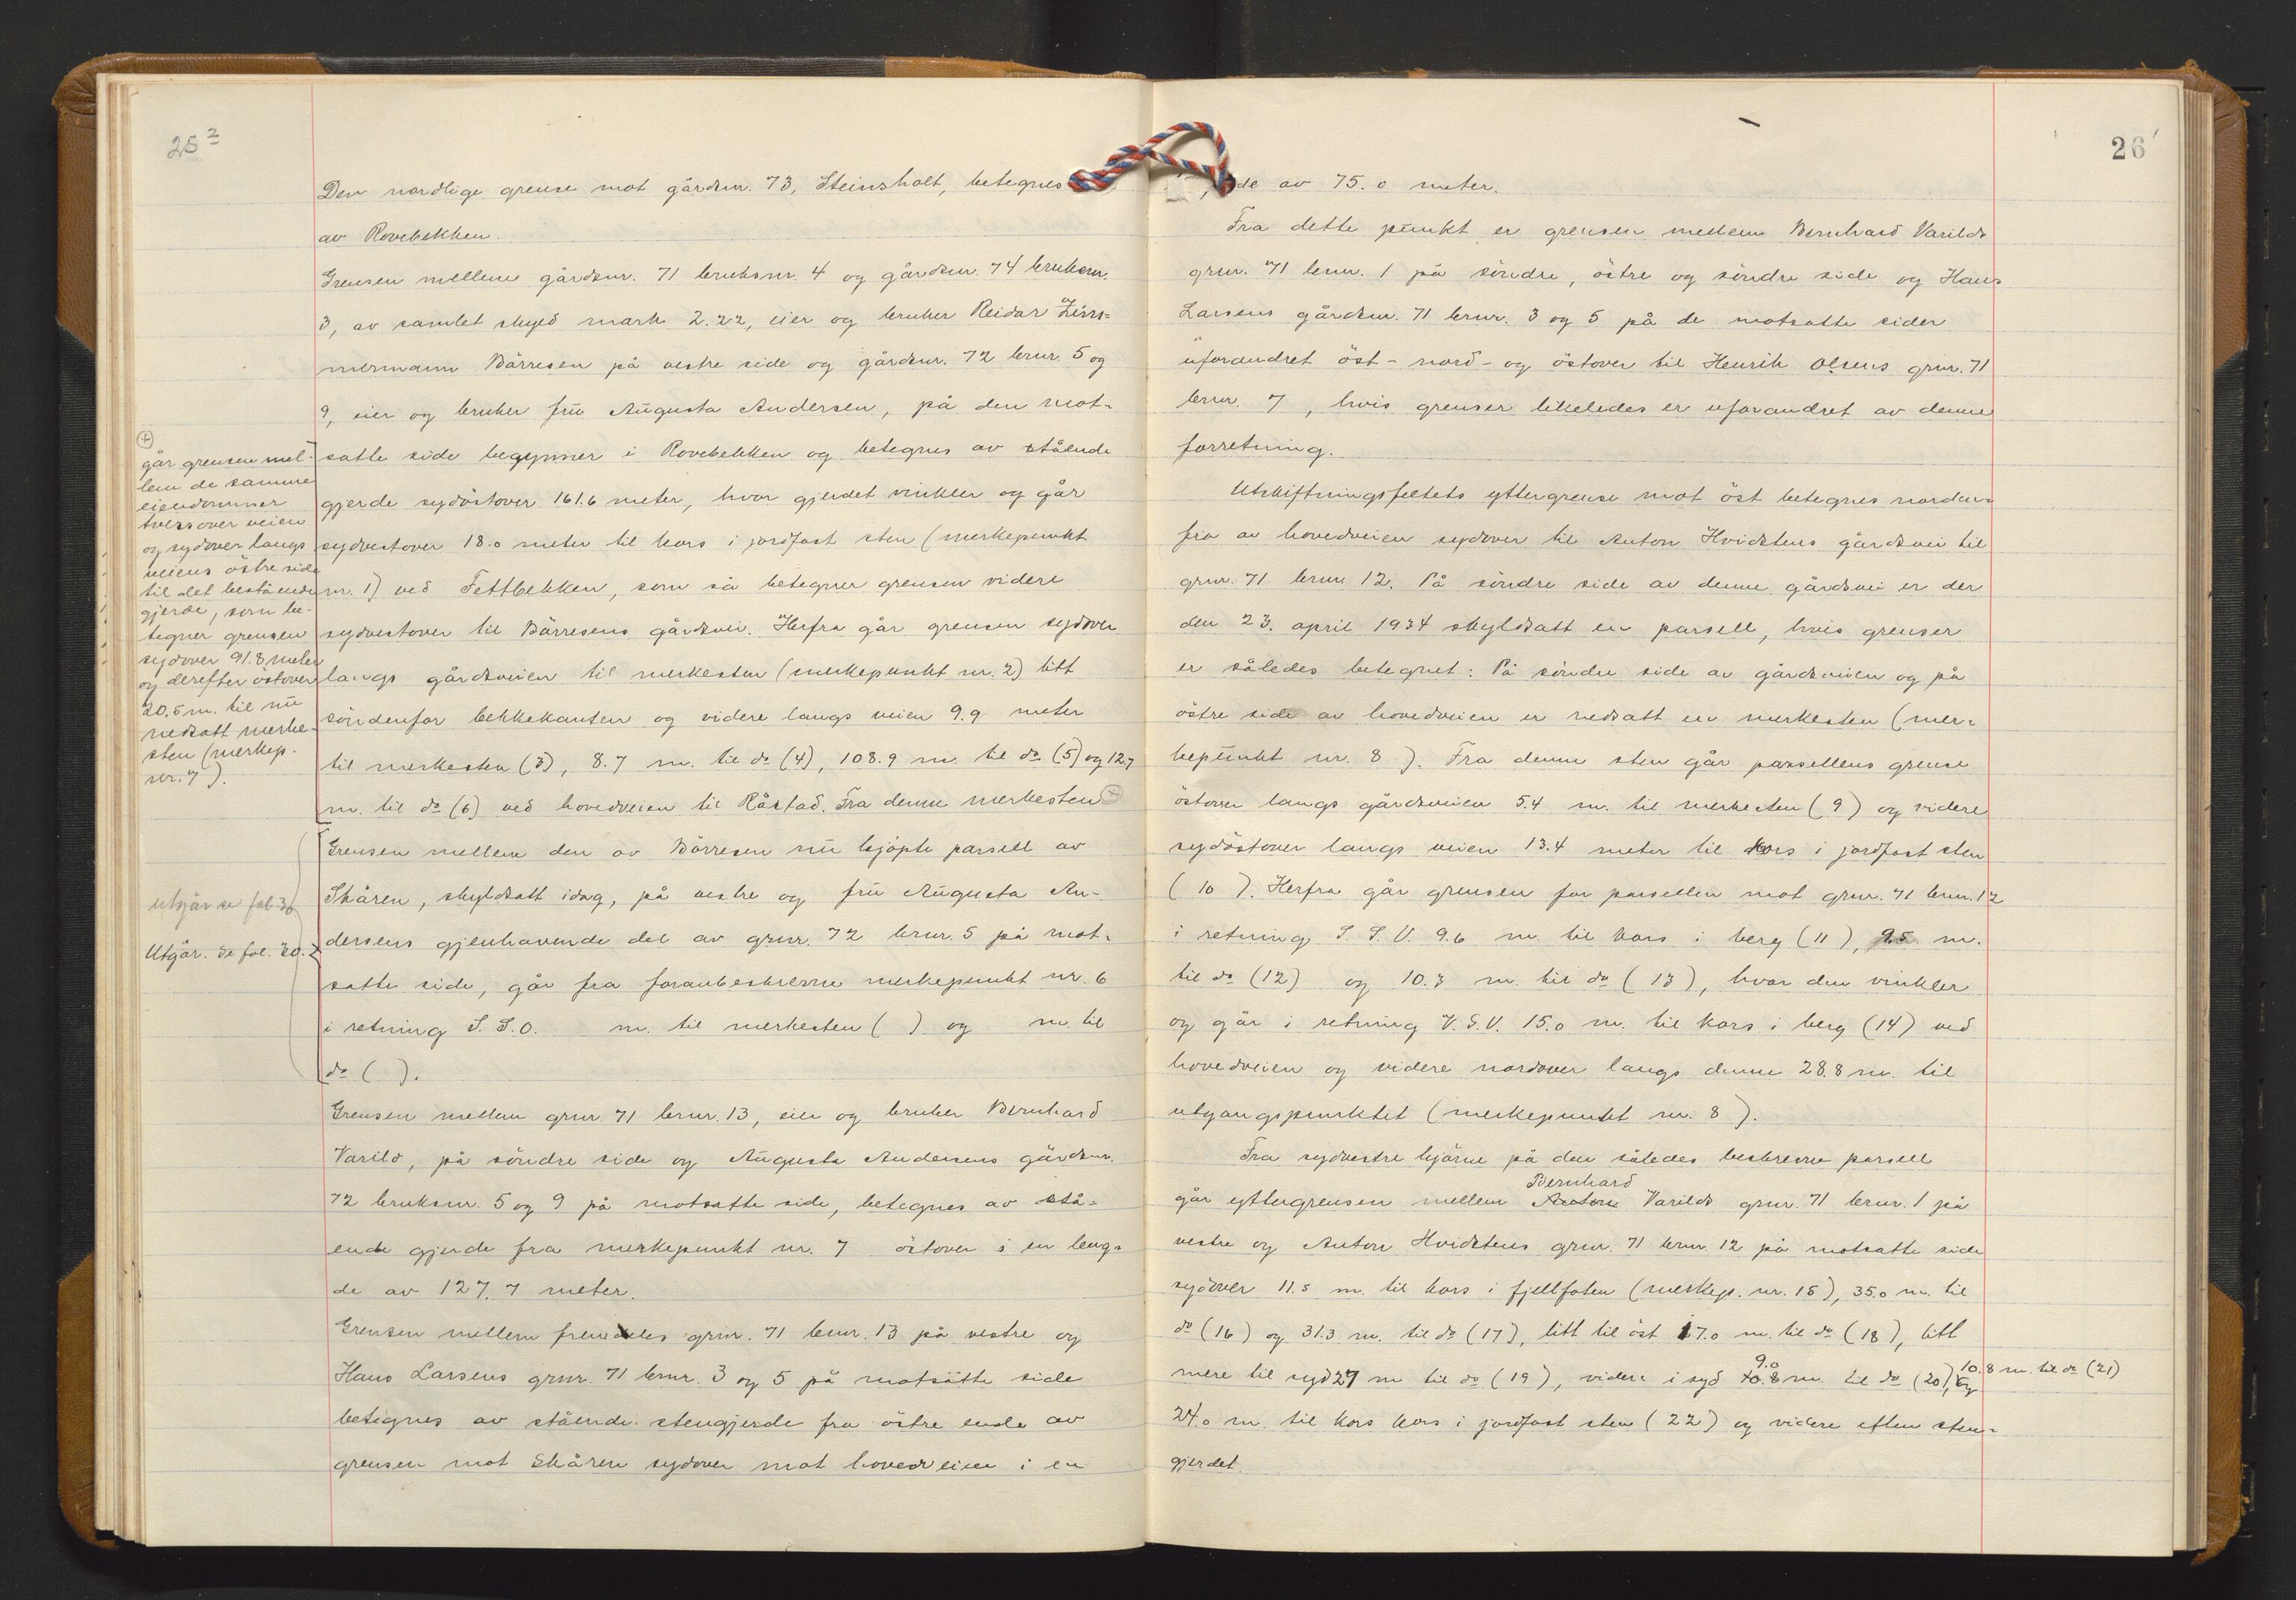 25²
Den nordlige grense mot gårdsnr. 73, Steinsholt, betegnes
av Rovebekken.
Grensen mellem gårdsnr. 71 bruksnr. 4 og gårdsnr. 74 bruksnr.
3, av samlet skyld mark 2.22, eier og bruker Reidar Zim-
mermann Bärresen på vestre side og gårdsnr. 72 brnr. 5 og
9, eier og bruker fru Augusta Andersen, på den mot-
satte side begynner i Rovebekken og betegnes av stående
gjerde sydöstover 161.6 meter, hvor gjerdet vinkler og går
sydvestover 18.0 meter til kors i jordfast sten (merkepunkt
nr. 1) ved Tettbekken, som så betegner grensen videre
sydvestover til Bärresens gårdsvei. Herfra går grensen sydover
langs gårdsveien til merkesten (merkepunkt nr. 2) litt
söndenfor bekkekanten og videre langs veien 9.9 meter
til merkesten (3), 8.7 m. til do (4), 108.9 m. til do (5) og 12.7
m. til do (6) ved hovedveien til Råstad. Fra denne merkesten (+)
Grensen mellem den av Bärresen nu kjöpte parsell av
Skåren, skyldsatt idag, på vestre og fru Augusta An-
dersens gjenhavende del av grnr. 72 brnr. 5 på mot-
satte side, går fra foranbeskrevne merkepunkt nr. 6
i retning S.S.O. m. til merkesten ( ) og m. til
do ( ).
Grensen mellem grnr. 71 brnr. 13, eier og bruker Bernhard
Varild, på söndre side og Augusta Andersens gårdsnr.
72 bruksnr. 5 og 9 på motsatte side, betegnes av stå-
ende gjerde fra merkepunkt nr. 7 östover i en leng-
de av 127.7 meter.
Grensen mellem fremdeles grnr. 71 brnr. 13 på vestre og
Hans Larsens grnr. 71 brnr. 3 og 5 på motsatte side
betegnes av stående stengjerde fra östre ende av
grensen mot Skåren sydover mot hovedveien i en
(+)
går grensen mel-
lem de samme
eiendommer
tvers over veien
og sydover langs
veiens östre side
til det bestående
gjerde, som be-
tegner grensen
sydover 91.8 meter
og derefter östover
20.5 m. til nu
nedsatt merke-
sten (merkep.
nr. 7).
utgår se fol. 30
Utgår. Se fol. 30.2
26
de av 75.0 meter.
Fra dette punkt er grensen mellem Bernhard Varilds
grnr. 71 brnr. 1 på söndre, östre og söndre side og Hans
Larsens gårdsnr. 71 brnr. 3 og 5 på de motsatte sider
uforandret öst- nord- og östover til Henrik Olsens grnr. 71
brnr. 7, hvis grenser likeledes er uforandret av denne
forretning.
Utskiftningsfeltets yttergrense mot öst betegnes norden-
fra av hovedveien sydover til Anton Hvidstens gårdsvei til
grnr. 71 brnr 12. På söndre side av denne gårdsvei er der
den 23. april 1934 skyldsatt en parsell, hvis grenser
er således betegnet: På söndre side av gårdsveien og på
östre side av hovedveien er nedsatt en merkesten (mer-
kepunkt nr. 8). Fra denne sten går parsellens grense
östover langs gårdsveien 5.4 m. til merkesten (9) og videre
sydöstover langs veien 13.4 meter til kors i jordfast sten
(10). Herfra går grensen for parsellen mot grnr. 71 brnr. 12
i retning S.S.V. 9.6 m. til kors i berg (11), 9.5 m.
til do (12) og 10.3 m. til do (13), hvor den vinkler
og går i retning V.S.V. 15.0 m. til kors i berg (14) ved
hovedveien og videre nordover langs denne 28.8 m. til
utgangspunktet (merkepunkt nr. 8).
Fra sydvestre hjörne på den således beskrevne parsell
Bernhard
går yttergrensen mellem Anton Varilds grnr. 71 brnr. 1 på
vestre og Anton Hvidstens grnr. 71 brnr. 12 på motsatte side
sydover 11.5 m. til kors i fjellfoten (merkep. nr. 15), 35.0 m. til
do (16) og 31.3 m. til do (17), litt til öst 17.0 m. til do (18), litt
9.0
mere til syd 27 m til do (19), videre i syd 10.8 m. til do (20), og 10.8 m. til do (21)
24.0 m. til kors kors i jordfast sten (22) og videre efter sten-
gjerdet.